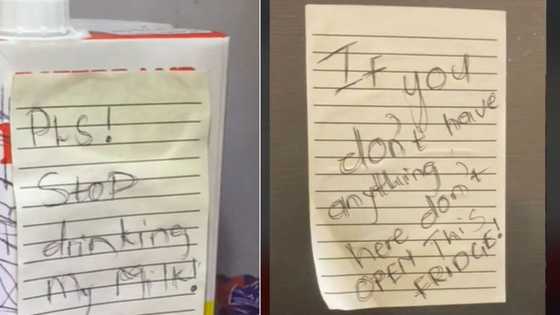 Pls!
Stop
drinking
My Milk!
If you
don't have
anything
here don't
OPEN THIS
FRIDGE!